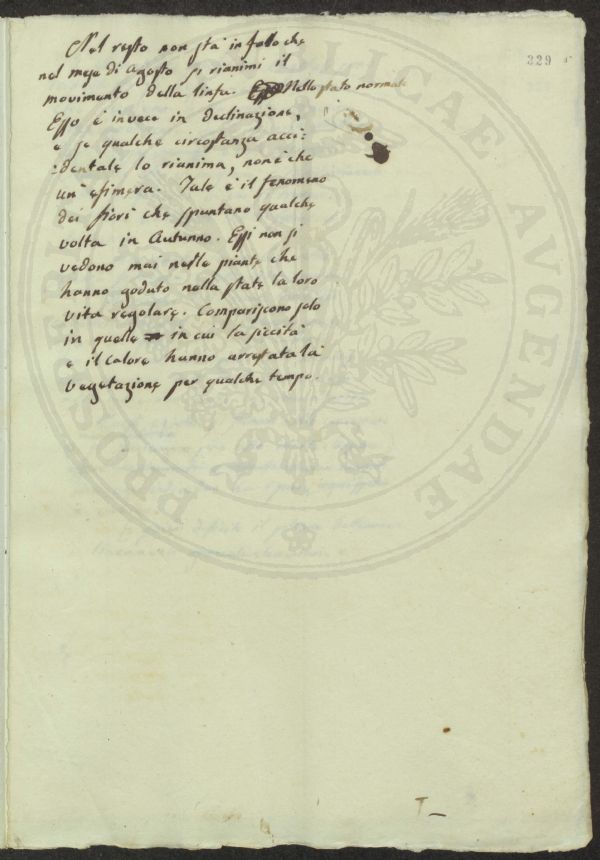 329
Nel resto non stà in fatto che
nel mese di Agosto si rianimi il
movimento della linfa. Nello stato normale
Esso è invece in declinazione,
e se qualche circostanza acci:
:dentale lo rianima, non è che
un' efimera. Tale è il fenomeno
dei fiori che spuntano qualche
volta in Autunno. Essi non si
vedono mai nelle piante che
hanno goduto nella state la loro
vita regolare. Compariscono solo
in quelle in cui la siccità
e il calore hanno arrestata la
vegetazione per qualche tempo.